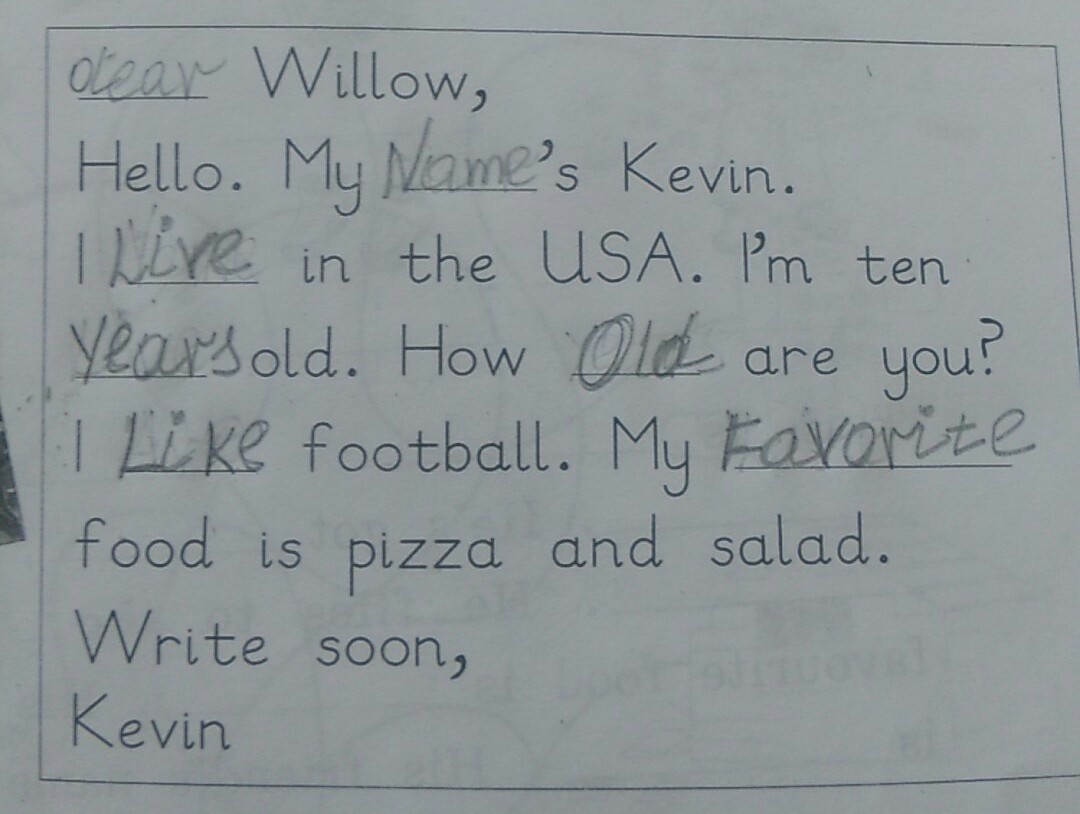 dear Willow,
Hello. My Name's Kevin.
I Live in the USA. I'm ten
years old. How Old are you?
I Like football. My Favorite
food is pizza and salad.
Write soon,
Kevin